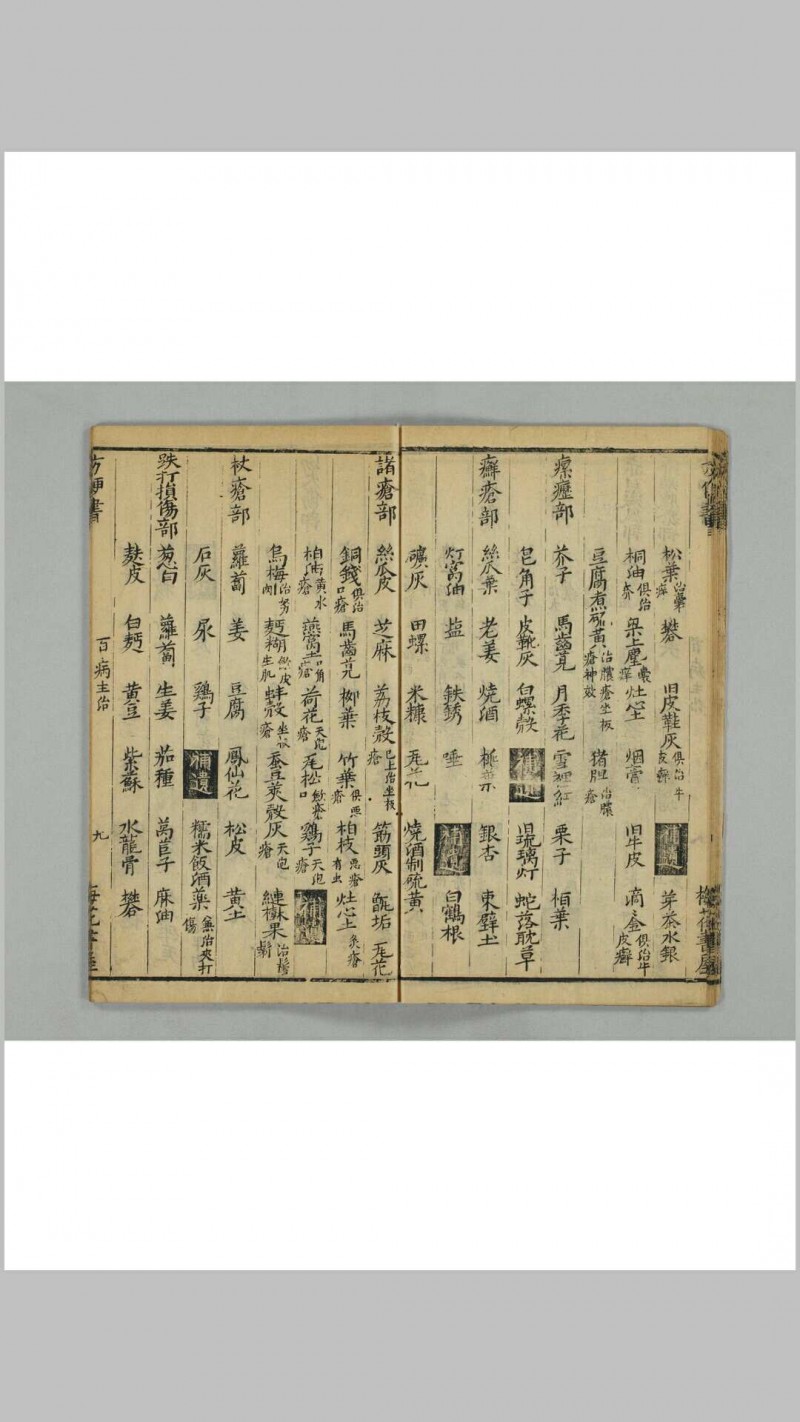 松葉 治囊痒 礬 旧皮鞋灰 俱治牛皮癬 補遺 芽茶 水銀
桐油 俱治疥 梁上塵 灶土 烟膏 旧牛皮 滴金 俱治牛皮癬
豆腐 煮硫黃 治膿瘡坐板瘡神效 猪胆 治膿瘡
瘰癧部 芥子 馬齒莧 月季花 雪裡紅 栗子 柏葉
皂角子 皮靴灰 白螺殼 補遺 琉璃灯 蛇落耽草
癬瘡部 絲瓜葉 老姜 燒酒 銀杏 東壁土
灯窩油 盐 鉄銹 唾 補遺 白鶴根
礦灰 田螺 米糠 芫花 燒酒制硫黃
諸瘡部 絲瓜皮 芝麻 荔枝殼 已上治坐板瘡 筋頭灰 甑垢 芫花
銅錢 俱治口瘡 馬齒莧 柳葉 竹葉 瘡 柏枝 悪瘡有虫 灶心土 瘡
柏油 黃水瘡 燕窩土 口角瘡 荷花 天泡瘡 瓦松 口瘡 鷄子 天泡瘡 補遺
烏梅 治努肉 麪糊 生肌 蚌殼 坐板瘡 蚕豆莢殼灰 天泡瘡 果
杖瘡部 蘿蔔 姜 豆腐 鳳仙花 松皮 黃土
石灰 尿 鷄子 補遺 糯米飯酒藥 兼治夾打傷
跌打損傷部 葱白 蘿蔔 生姜 茄種 萵苣子 麻油
麸皮 白麪 黃豆 紫蘇 水龍骨 礬
百病主治 九